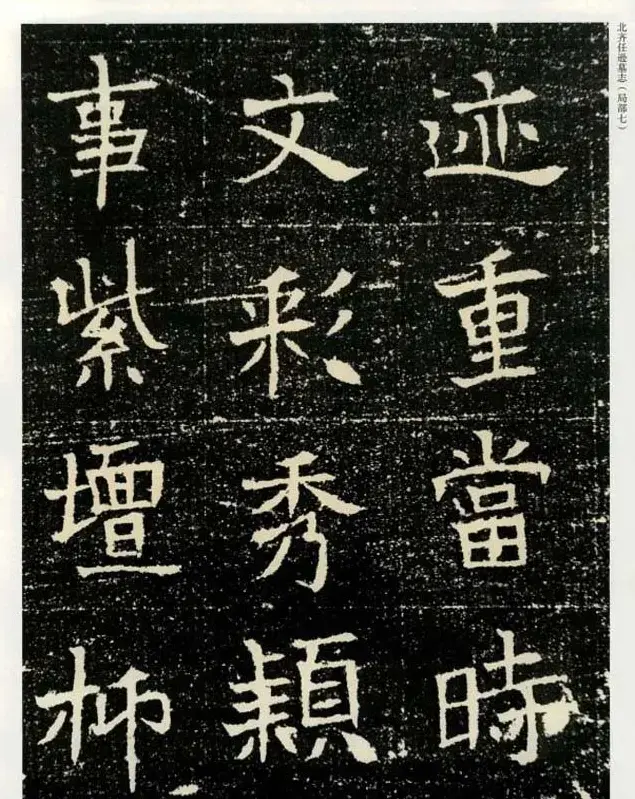 北齐任逊墓志（局部七）
迹重當時
文彩秀穎
事紫壇柳